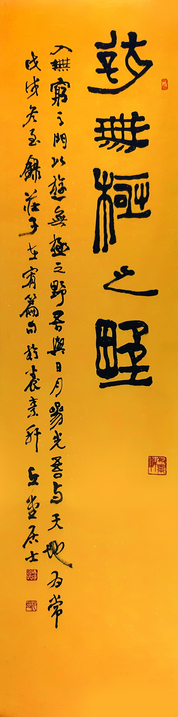 游無極之野
入無窮之門以遊無極之野吾與日月參光吾與天地為常
戊戌冬至錄莊子在宥篇句於養素軒 丘堂居士